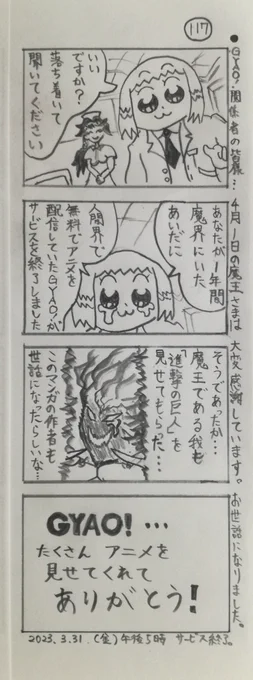 117
●GYAO!関係者の皆様… 4月1日の魔王さまは大変感謝しています。お世話になりました。
いい
ですか?
落ち着いて
聞いてください
あなたが1年間
魔界にいた
あいだに
人間界で
無料でアニメを
配信していたGYAO!が
サービスを終了しました
そうであったか…
魔王である我も
「進撃の巨人」を
見せてもらった…
このマンガの作者も
世話になったらしいな…
GYAO!…
たくさん アニメを
見せてくれて
ありがとう!
2023.3.31.(金)午後5時 サービス終了。